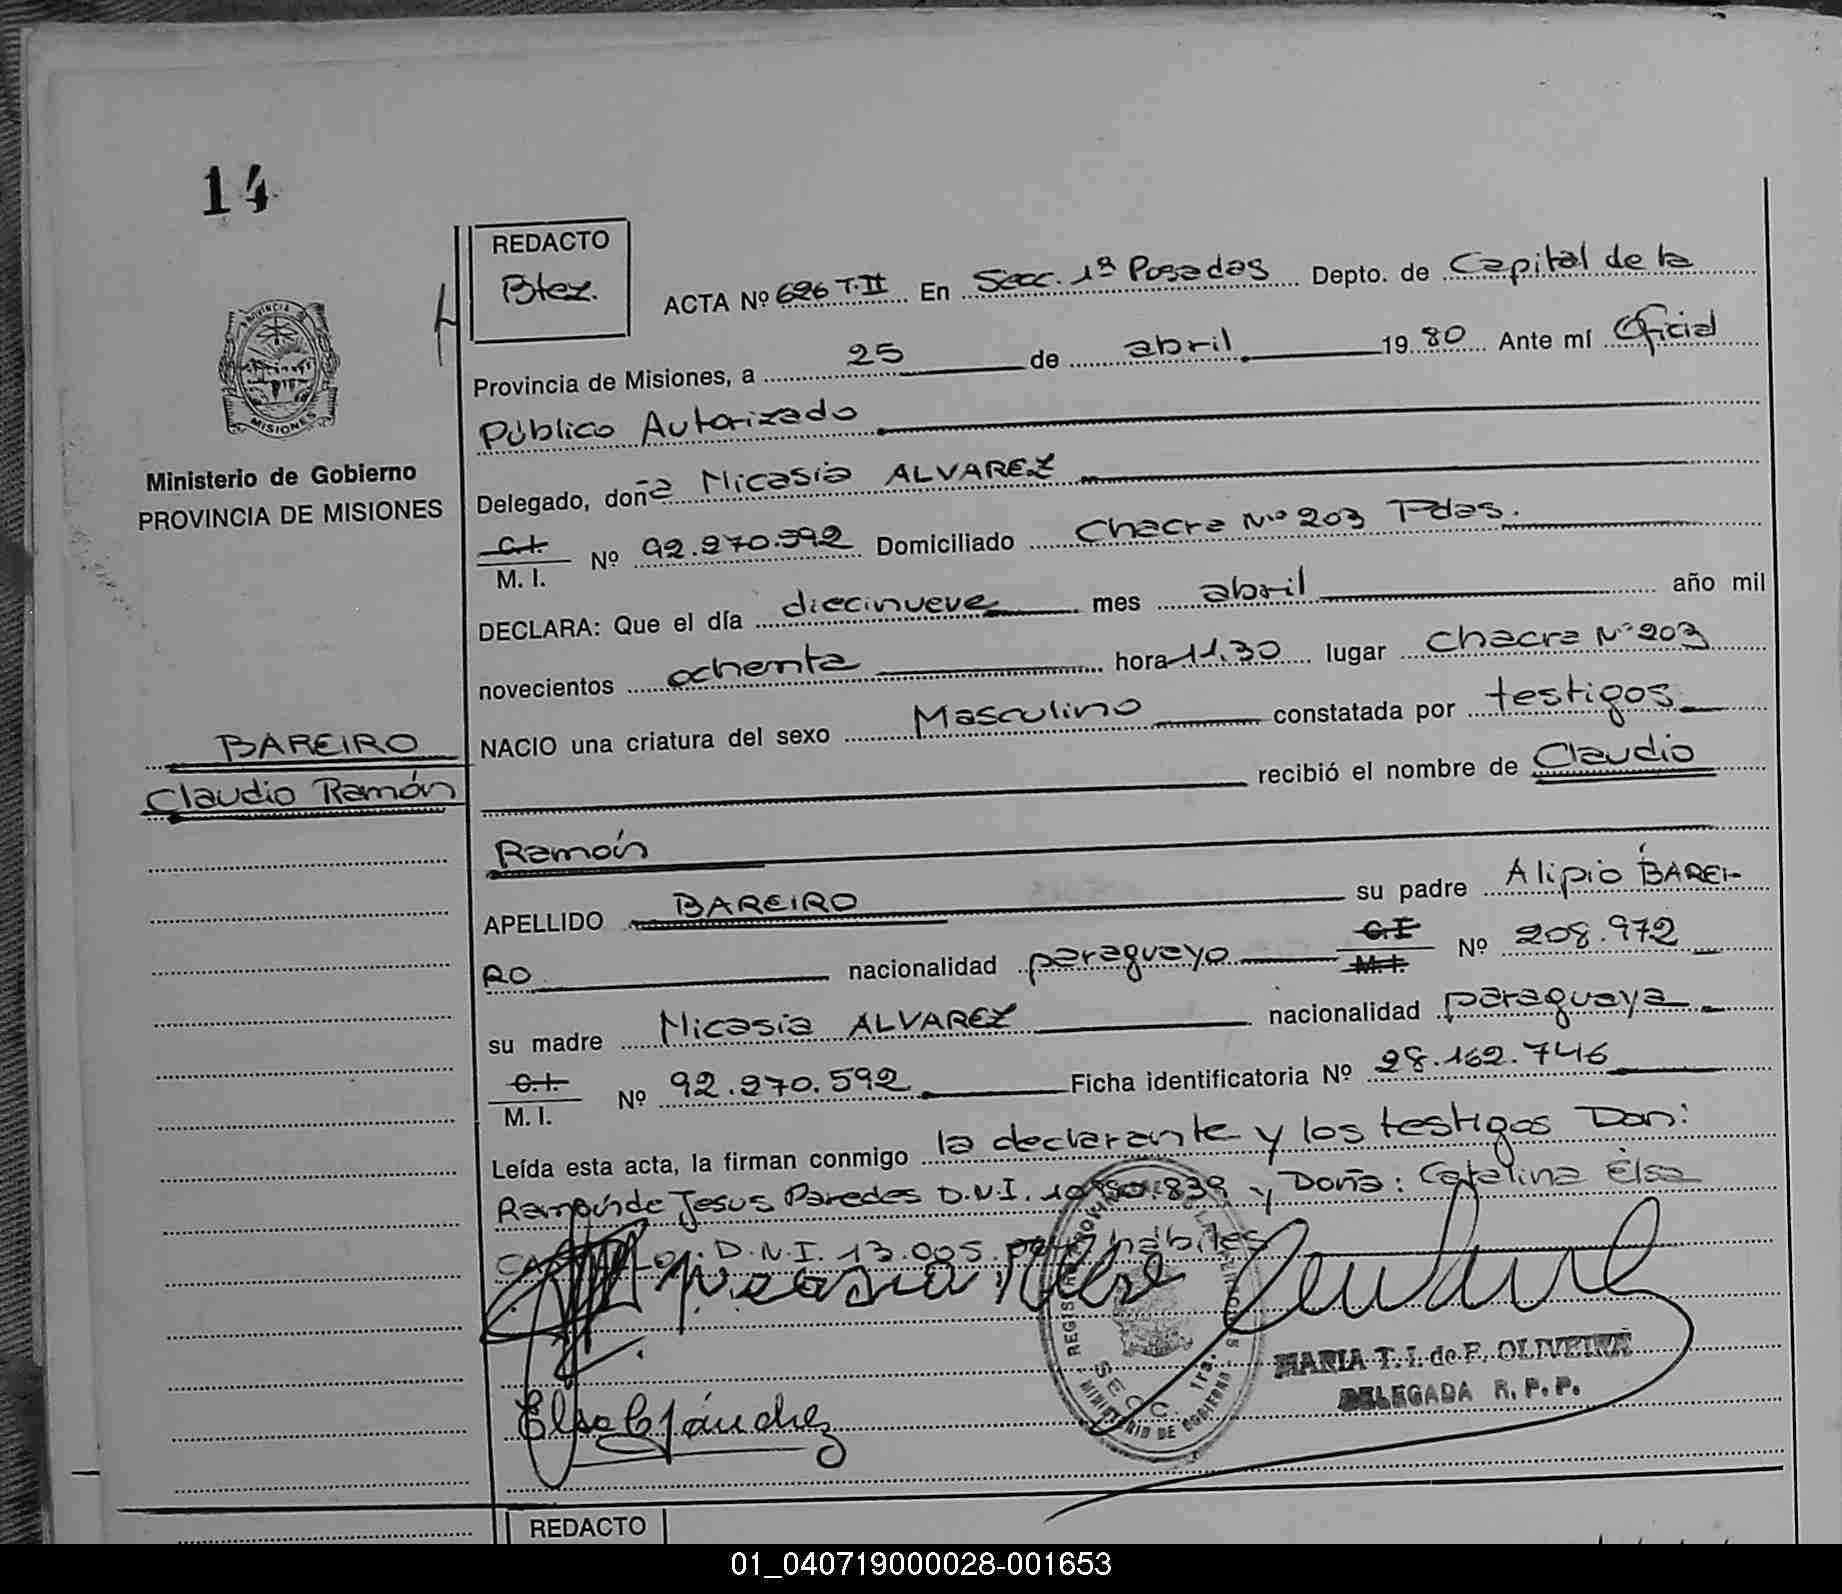 14
REDACTO
Btez.
ACTA Nº 626 T.II En Secc. 1ª Posadas Depto. de Capital de la
Provincia de Misiones, a 25 de abril 19 80 Ante mí Oficial
Público Autorizado
Delegado, doña Nicasia ALVAREZ
C.I.
M. I. Nº 92.270.592 Domiciliado Chacra Nº 203 Pdas.
DECLARA: Que el día diecinueve mes abril año mil
novecientos ochenta hora 11,30 lugar Chacra Nº 203
NACIO una criatura del sexo Masculino constatada por testigos
recibió el nombre de Claudio
Ramón
APELLIDO BAREIRO su padre Alipio BAREI-
RO nacionalidad paraguayo C.I M.I. Nº 208.972
su madre Nicasia ALVAREZ nacionalidad paraguaya
C.I.
M. I. Nº 92.270.592 Ficha identificatoria Nº 28.162.746
Leída esta acta, la firman conmigo la declarante y los testigos Don:
Ramón de Jesus Paredes D.N.I. y Doña: Catalina Elsa
D.N.I. 13.005. hábiles
Nicasia
Elsa C Sánchez
MINISTERIO DE GOBIERNO
SECC. 1ra.
MARIA T. I. de F. OLIVEIRA
DELEGADA R. P. P.
PROVINCIA
MISIONES
Ministerio de Gobierno
PROVINCIA DE MISIONES
BAREIRO
Claudio Ramón
REDACTO
01_040719000028-001653